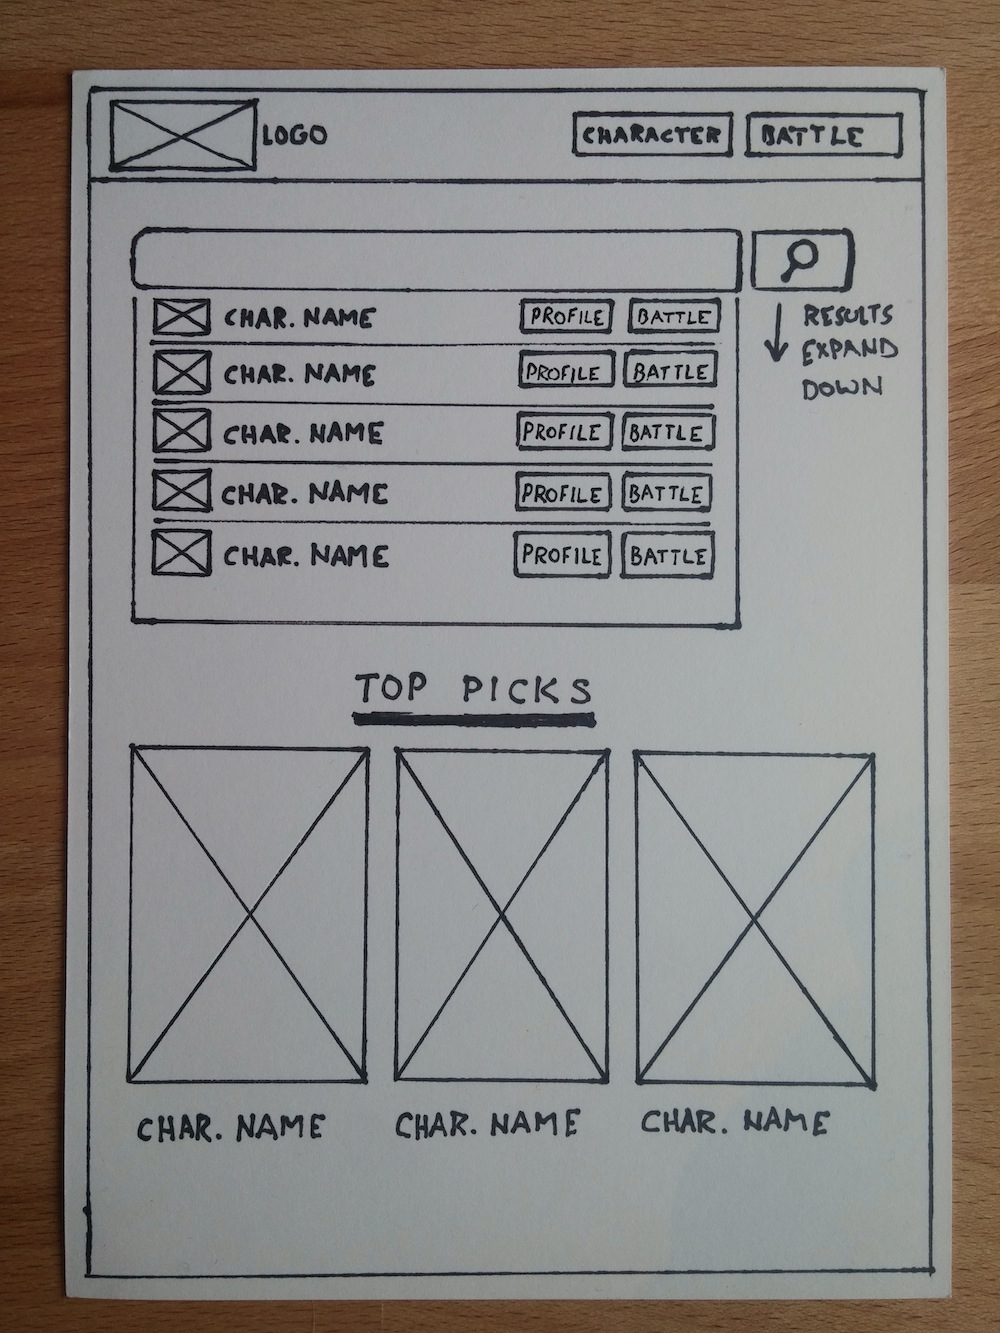 LOGO
CHARACTER
BATTLE
CHAR. NAME PROFILE BATTLE
CHAR. NAME PROFILE BATTLE
CHAR. NAME PROFILE BATTLE
CHAR. NAME PROFILE BATTLE
CHAR. NAME PROFILE BATTLE
RESULTS
EXPAND
DOWN
TOP PICKS
CHAR. NAME
CHAR. NAME
CHAR. NAME